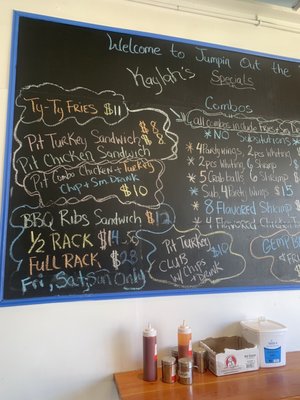 Welcome to Jumpin Out the
Kaylah's Specials
Ty-Ty Fries $11
Pit Turkey Sandwich $8
Pit Chicken Sandwich $8
Pit Combo Chicken + Turkey
Chip + Sm. Drink
$10
BBQ Ribs Sandwich $12
1/2 Rack $14.56
Full Rack $28
Fri, Sat, Sun Only
Pit Turkey $10
Club
w/ Chips
+ Drink
Combos
all combos include Fries or Sm D
*No Substitutions
* 4 Party Wings, 2 pcs Whiting
* 2 pcs Whiting 6 Shrimp
* 5 Crab Balls 6 Shrimp $
* Sub, 4 Party Wings $15
* 8 Flavored Shrimp $
* 4 Flavored